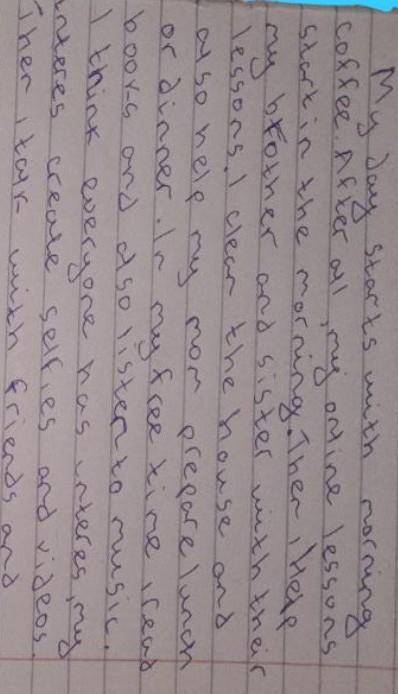 My day starts with morning
coffee. After all, my online lessons
start in the morning. Then i help
my brother and sister with their
lessons. I clean the house and
also help my mom prepare lunch
or dinner. In my free time i read
books and also listen to music.
I think everyone has interes, my
interes create selfies and videos.
Then i talk with friends and